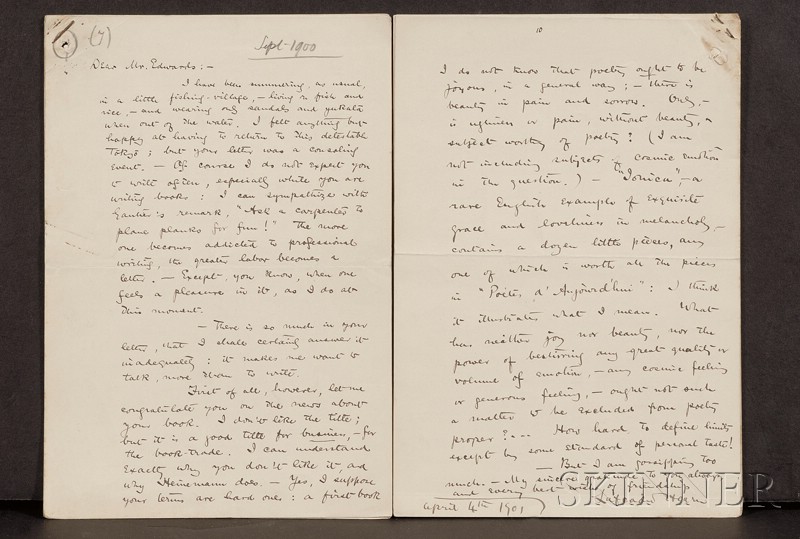 (7)
Sept-1900
Dear Mr. Edwards: —
I have been summering, as usual,
in a little fishing-village, — living on fish and
rice, — and wearing only sandals and yukata
when out of the water. I felt anything but
happy at having to return to this detestable
Tokyo; but your letter was a consoling
event. — Of course I do not expect you
to write often, especially while you are
writing books: I can sympathize with
Gautier's remark, "Ask a carpenter to
plane planks for fun!" The more
one becomes addicted to professional
writing, the greater labor becomes a
letter. — Except, you know, when one
feels a pleasure in it, as I do at
this moment.
— There is so much in your
letter, that I shall certainly answer it
inadequately: it makes me want to
talk, more than to write.
First of all, however, let me
congratulate you on the news about
your book. I don't like the title;
but it is a good title for business, — for
the book-trade. I can understand
exactly why you don't like it, and
why Heinemann does. — Yes, I suppose
your terms are hard ones: a first book
10
I do not know that poetry ought to be
joyous, in a general way; — there is
beauty in pain and sorrow. Only, —
is ugliness or pain, without beauty, a
subject worthy of poetry? (I am
not including subjects of cosmic emotion
in the question.) — "Ionica", — a
rare English example of exquisite
grace and loveliness in melancholy, —
contains a dozen little pieces, any
one of which is worth all the pieces
in "Poètes d'Aujourd'hui": I think
it illustrates what I mean. What
has neither joy nor beauty, nor the
power of bestirring any great quality or
volume of emotion, — any cosmic feeling
or generous feeling, — ought not such
a matter to be excluded from poetry
proper? --- How hard to define limits
except by some standard of personal taste!
— But I am gossiping too
much. — My sincere gratitude to you always
and every best wish of friendship.
Lafcadio Hearn
April 4th 1901
SKINNER